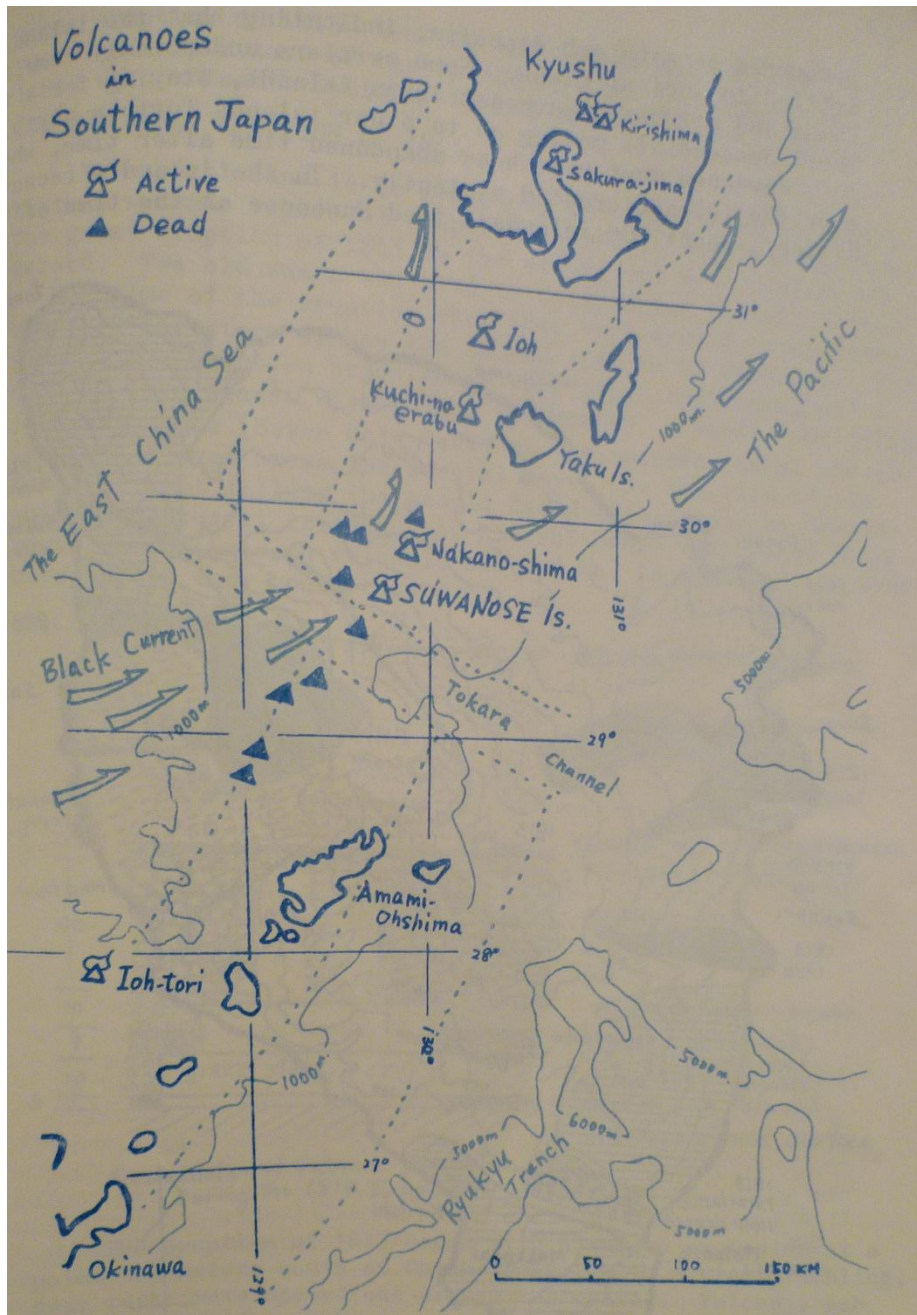 Volcanoes
in
Southern Japan
Active
Dead
Kyushu
Kirishima
Sakura-jima
31°
Ioh
Kuchi-na
erabu
Yaku Is.
1000m.
The Pacific
The East China Sea
30°
Nakano-shima
SUWANOSE Is.
131°
Black Current
1000m
Tokara
Channel
5000m
29°
Amami-
Ohshima
28°
Ioh-tori
130°
1000m
5000m.
6000m
5000m
Ryukyu
Trench
27°
5000m
Okinawa
129°
0 50 100 150 KM